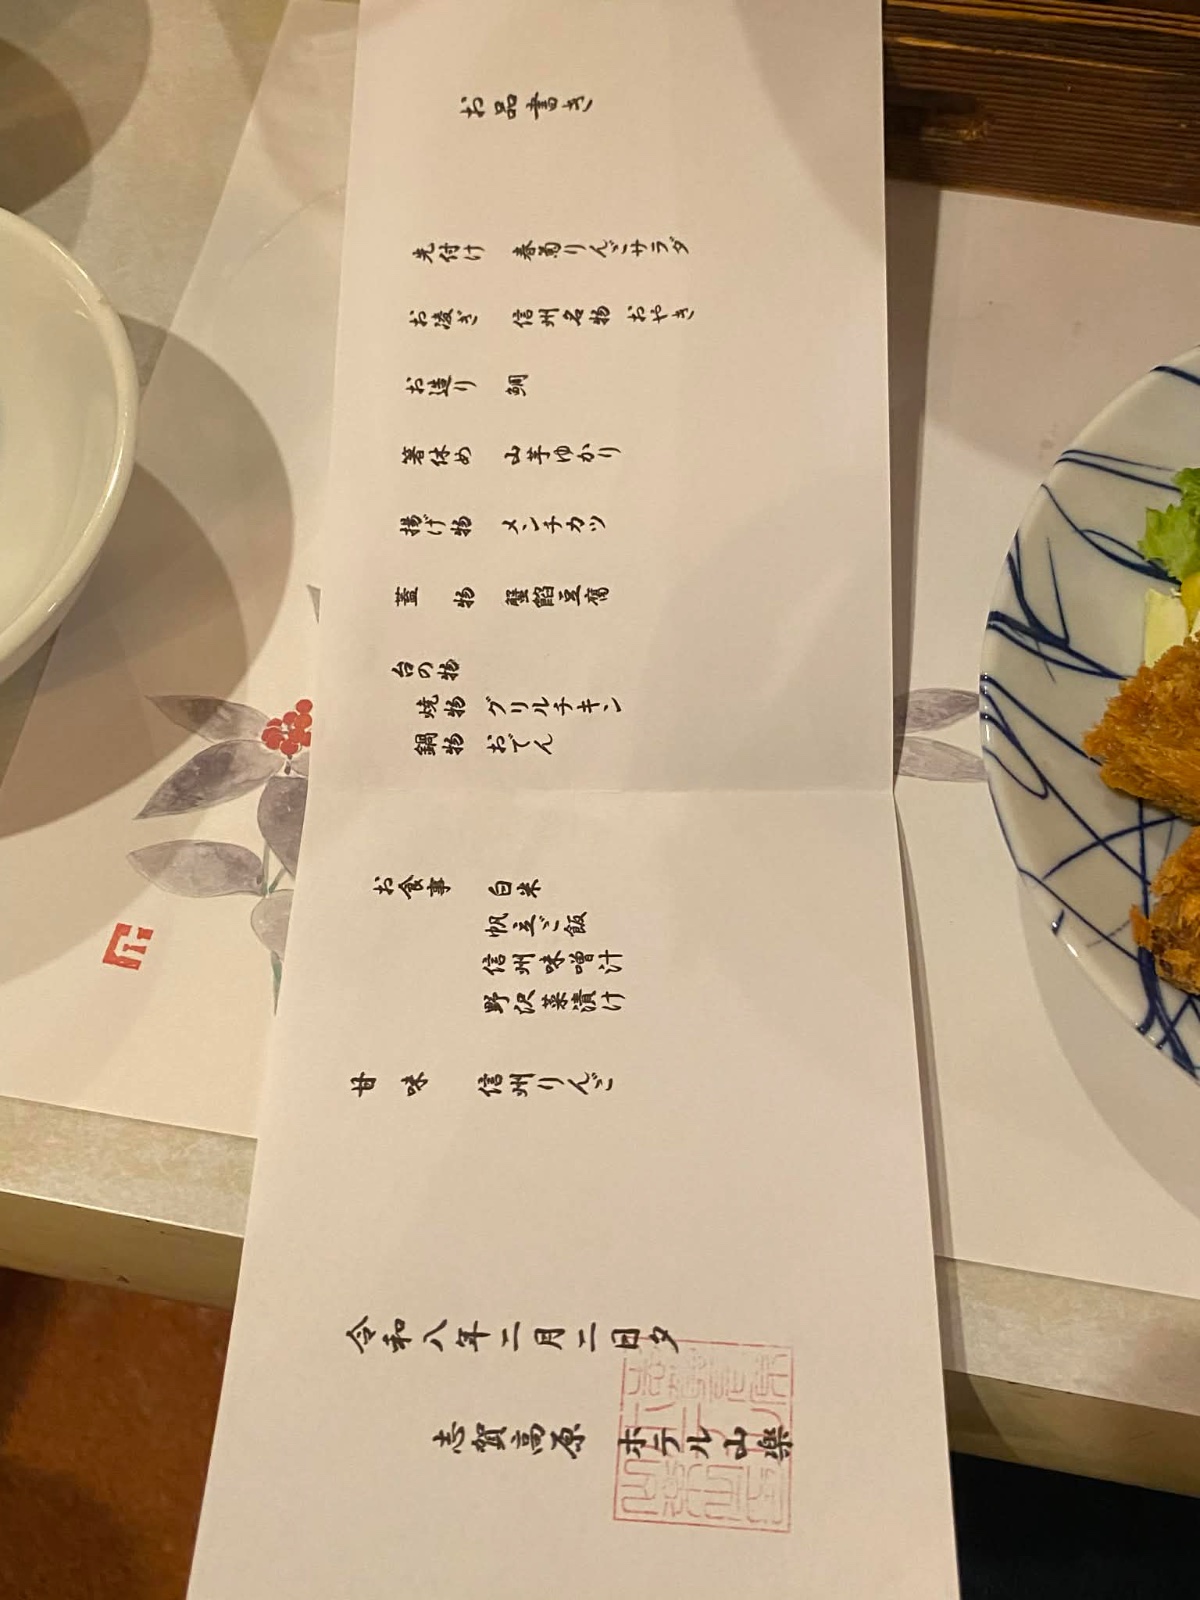 お品書き
先付け 春菊りんごサラダ
お凌ぎ 信州名物 おやき
お造り 鯛
箸休め 山芋ゆかり
揚げ物 メンチカツ
蓋物 蟹餡豆腐
台の物
焼物 グリルチキン
鍋物 おでん
お食事 白米
帆立ご飯
信州味噌汁
野沢菜漬け
甘味 信州りんご
令和八年二月二日夕
志賀高原 ホテル山楽